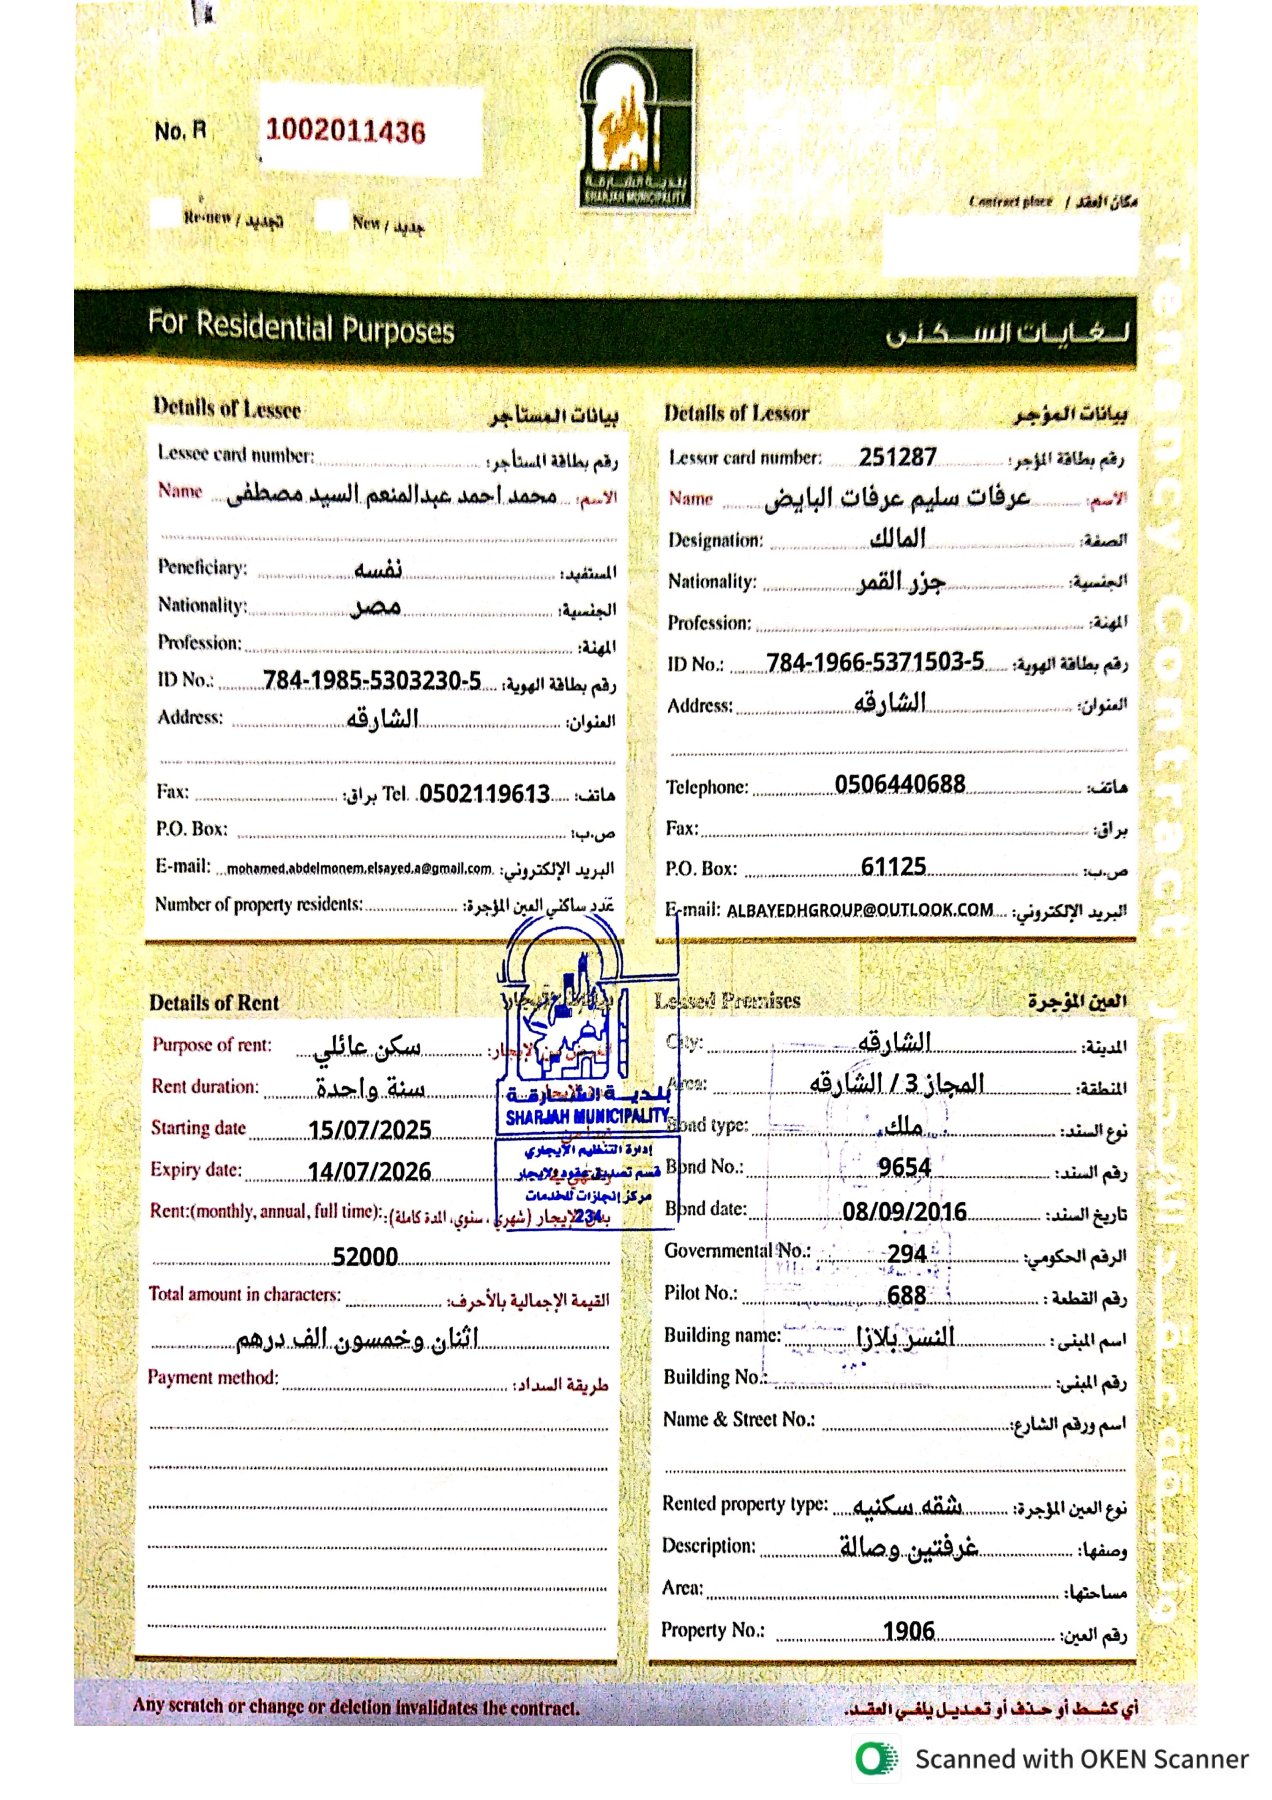 No. R 1002011436
بلدية الشارقة
SHARJAH MUNICIPALITY
Re-new / تجديد
New / جديد
Contract place / مكان العقد
For Residential Purposes
لغايات السكنى
Tenancy Contract
Details of Lessee بيانات المستأجر
Lessee card number: رقم بطاقة المستأجر:
Name محمد احمد عبدالمنعم السيد مصطفى الاسم:
Peneficiary: نفسه المستفيد:
Nationality: مصر الجنسية:
Profession: المهنة:
ID No.: 784-1985-5303230-5 رقم بطاقة الهوية:
Address: الشارقه العنوان:
Fax: براق: Tel. 0502119613 هاتف:
P.O. Box: ص.ب:
E-mail: mohamed.abdelmonem.elsayed.a@gmail.com البريد الإلكتروني:
Number of property residents: عدد ساكني العين المؤجرة:
Details of Lessor بيانات المؤجر
Lessor card number: 251287 رقم بطاقة المؤجر:
Name عرفات سليم عرفات البايض الاسم:
Designation: المالك الصفة:
Nationality: جزر القمر الجنسية:
Profession: المهنة:
ID No.: 784-1966-5371503-5 رقم بطاقة الهوية:
Address: الشارقه العنوان:
Telephone: 0506440688 هاتف:
Fax: براق:
P.O. Box: 61125 ص.ب:
E-mail: ALBAYEDHGROUP@OUTLOOK.COM البريد الإلكتروني:
Details of Rent بيانات الإيجار
Purpose of rent: سكن عائلي الغرض من الإيجار:
Rent duration: سنة واحدة
Starting date 15/07/2025
Expiry date: 14/07/2026
Rent:(monthly, annual, full time): بدل الإيجار (شهري، سنوي، المدة كاملة):
52000
Total amount in characters: القيمة الإجمالية بالأحرف:
اثنان وخمسون الف درهم
Payment method: طريقة السداد:
بلدية الشارقة
SHARJAH MUNICIPALITY
إدارة التنظيم الايجاري
قسم تصديق عقود الايجار
مركز إنجازات للخدمات
234
Leased Premises العين المؤجرة
City: الشارقه المدينة:
Area: المجاز 3 / الشارقه المنطقة:
Bond type: ملك نوع السند:
Bond No.: 9654 رقم السند:
Bond date: 08/09/2016 تاريخ السند:
Governmental No.: 294 الرقم الحكومي:
Pilot No.: 688 رقم القطعة:
Building name: النسر بلازا اسم المبنى:
Building No.: رقم المبنى:
Name & Street No.: اسم ورقم الشارع:
Rented property type: شقه سكنيه نوع العين المؤجرة:
Description: غرفتين وصالة وصفها:
Area: مساحتها:
Property No.: 1906 رقم العين:
Any scratch or change or deletion invalidates the contract.
أي كشط أو حذف أو تعديل يلغي العقد.
Scanned with OKEN Scanner